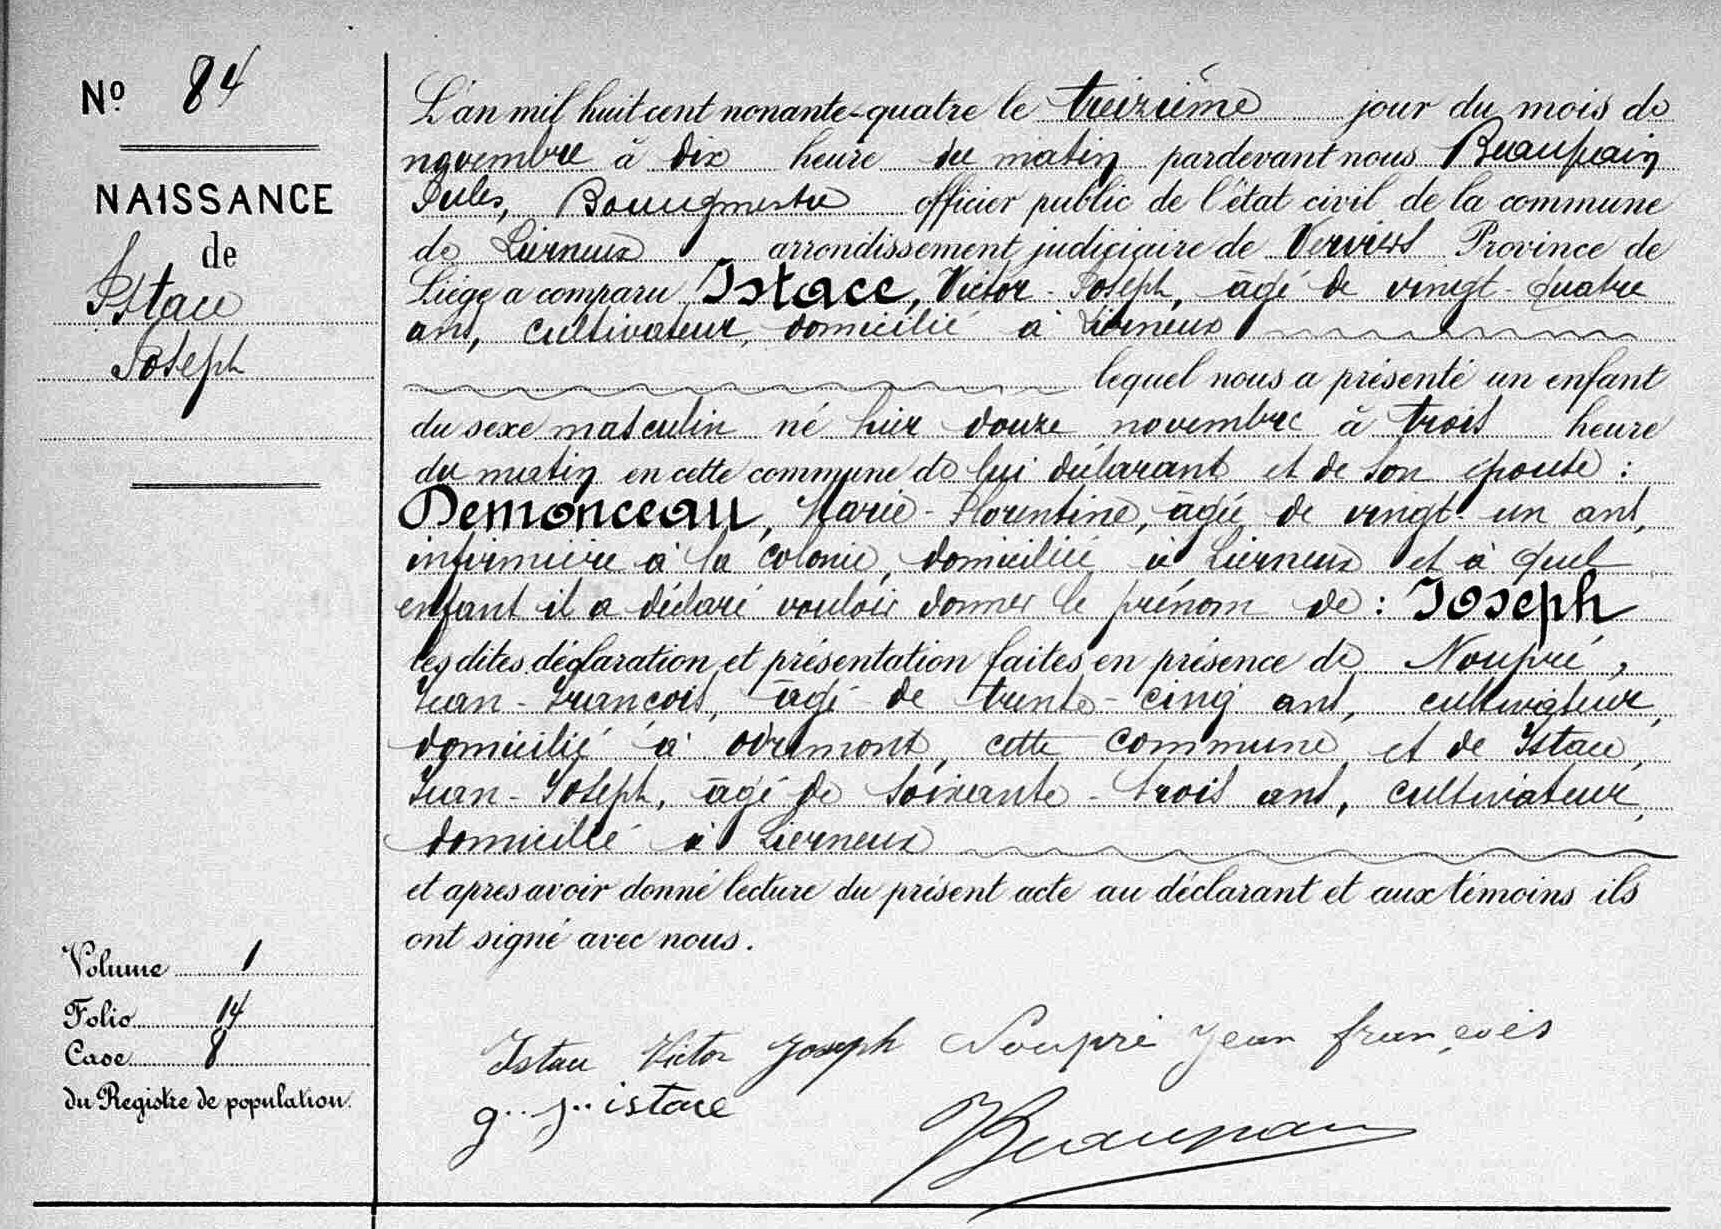 No 84
NAISSANCE
de
Istace
Joseph
L'an mil huit cent nonante-quatre le treizième jour du mois de
novembre à dix heure du matin pardevant nous Beaupain
Jules, Bourgmestre officier public de l'état civil de la commune
de Lierneux arrondissement judiciaire de Verviers Province de
Liège a comparu Istace, Victor-Joseph, âgé de vingt-quatre
ans, cultivateur, domicilié à Lierneux
lequel nous a présenté un enfant
du sexe masculin né hier douze novembre à trois heure
du matin en cette commune de lui déclarant et de son épouse :
Demonceau, Marie-Florentine, âgée de vingt-un ans,
infirmière à la colonie, domiciliée à Lierneux et à quel
enfant il a déclaré vouloir donner le prénom de : Joseph
les dites déclaration et présentation faites en présence de Noupré,
Jean-François, âgé de trente-cinq ans, cultivateur,
domicilié à Odrimont, cette commune et de Istace,
Jean-Joseph, âgé de soixante-trois ans, cultivateur,
domicilié à Lierneux
et apres avoir donné lecture du présent acte au déclarant et aux témoins ils
ont signé avec nous.
Volume 1
Folio 14
Case 8
du Registre de population.
Istace Victor Joseph Noupré Jean françois
g.. j.. istace
JBeaupain